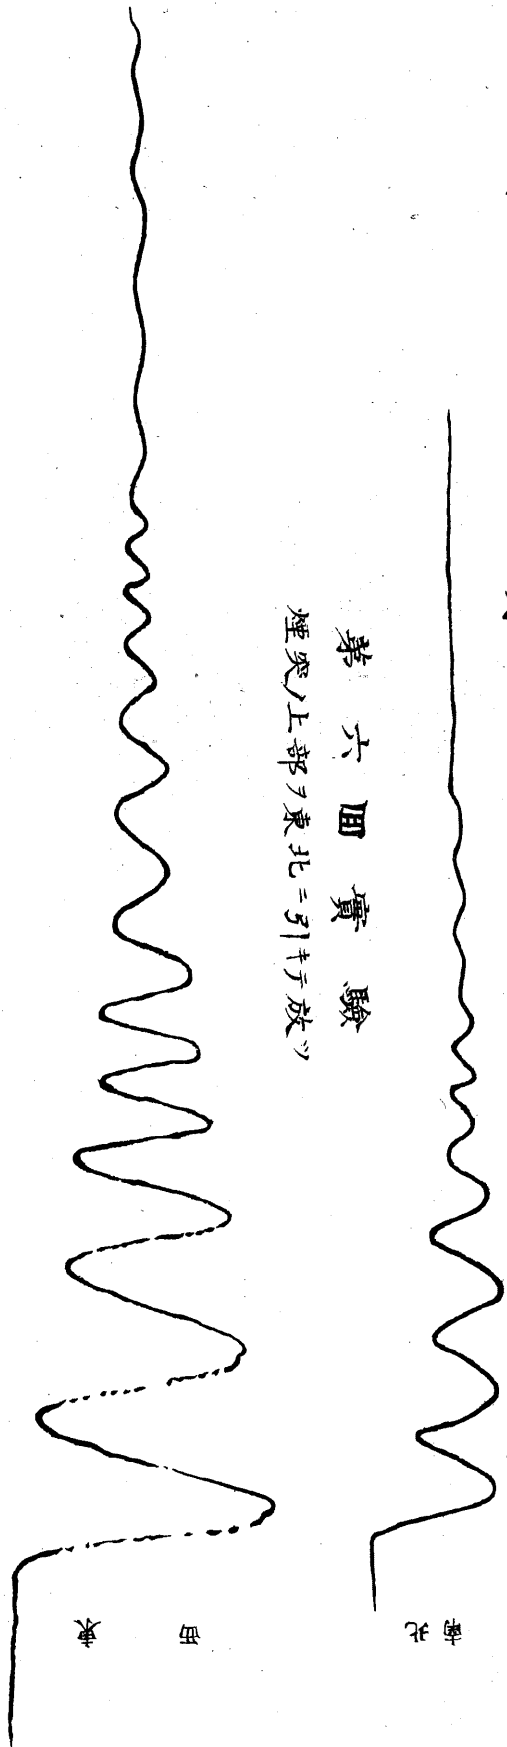 第六回實驗
煙突ノ上部ヲ東北ニ引キテ放ツ
東
西
北
南